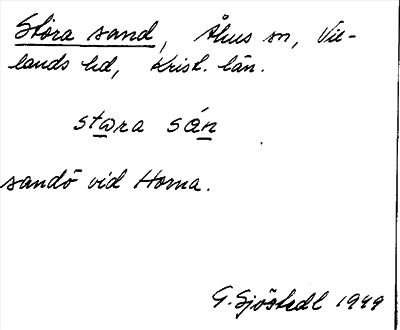 Stora sand, Åhus sn, Vil-
lands hd, Krist. län.
stɷra sán
sandö vid Horna.
G. Sjöstedt 1949